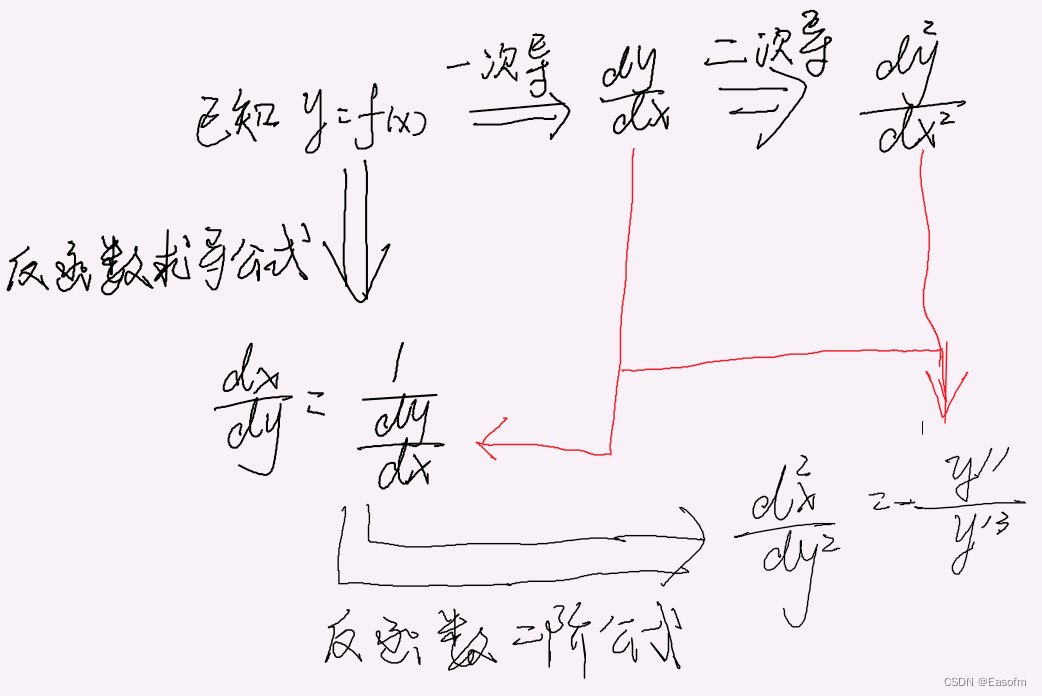 已知 y=f(x) 一次导 dy/dx 二次导 d²y/dx²
反函数求导公式
dx/dy = 1/(dy/dx)
d²x/dy² = - y''/y'³
反函数二阶公式
CSDN @Easofm